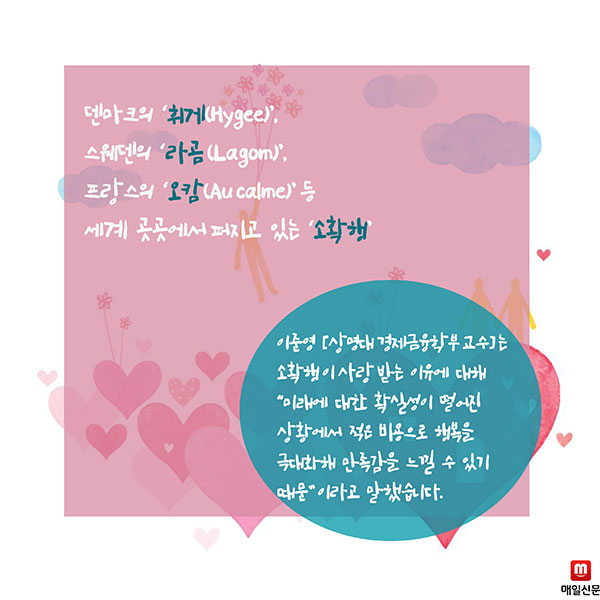 덴마크의 '휘게(Hygee)',
스웨덴의 '라곰(Lagom)',
프랑스의 '오캄(Au calme)' 등
세계 곳곳에서 퍼지고 있는 '소확행'
이준영 [상명대 경제금융학부 교수]는
소확행이 사랑 받는 이유에 대해
"미래에 대한 확실성이 떨어진
상황에서 적은 비용으로 행복을
극대화해 만족감을 느낄 수 있기
때문"이라고 말했습니다.
m
매일신문